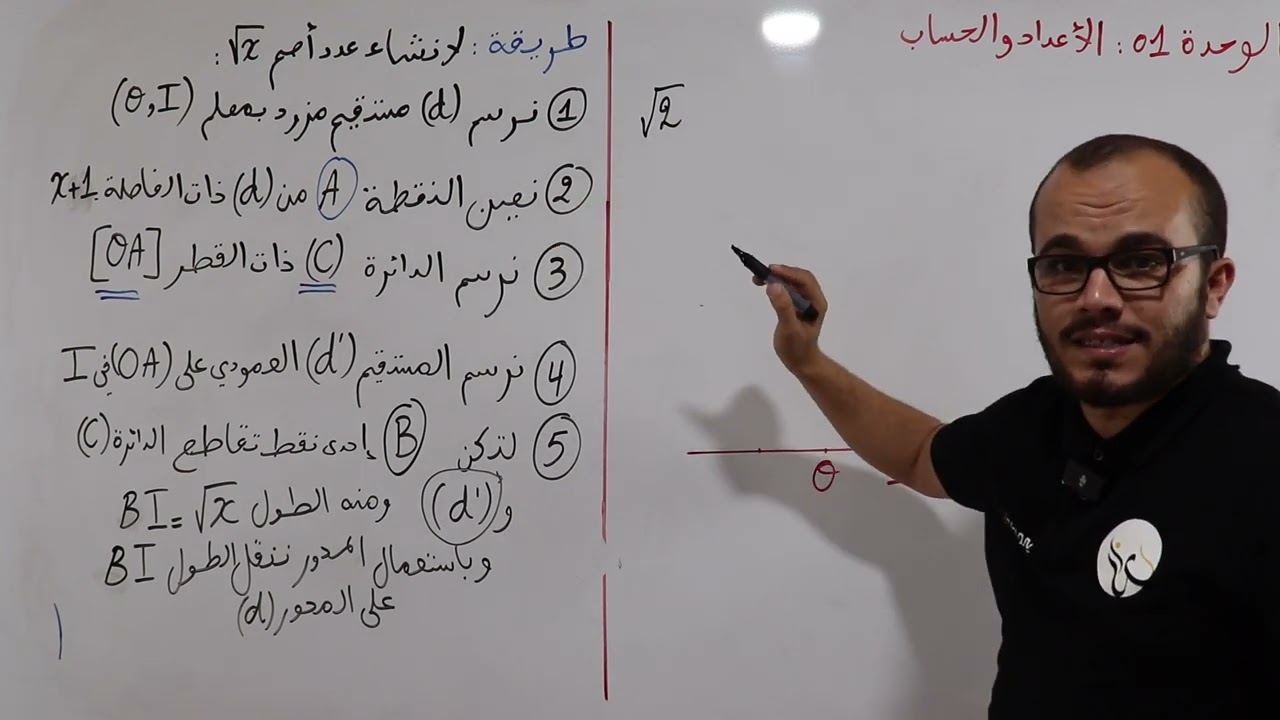 الوحدة 01 : الأعداد والحساب
طريقة : لإنشاء عدد أصم √x :
① نرسم (d) مستقيم مزود بمعلم (O,I)
② نعين النقطة A من (d) ذات الفاصلة x+1.
③ نرسم الدائرة (C) ذات القطر [OA]
④ نرسم المستقيم (d') العمودي على (OA) في I
⑤ لتكن B إحدى نقط تقاطع الدائرة (C)
و (d') ومنه الطول BI = √x
وباستعمال المدور ننقل الطول BI
على المحور (d)
√2
O